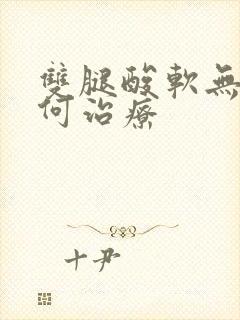 雙腿酸軟無
何治療
十尹